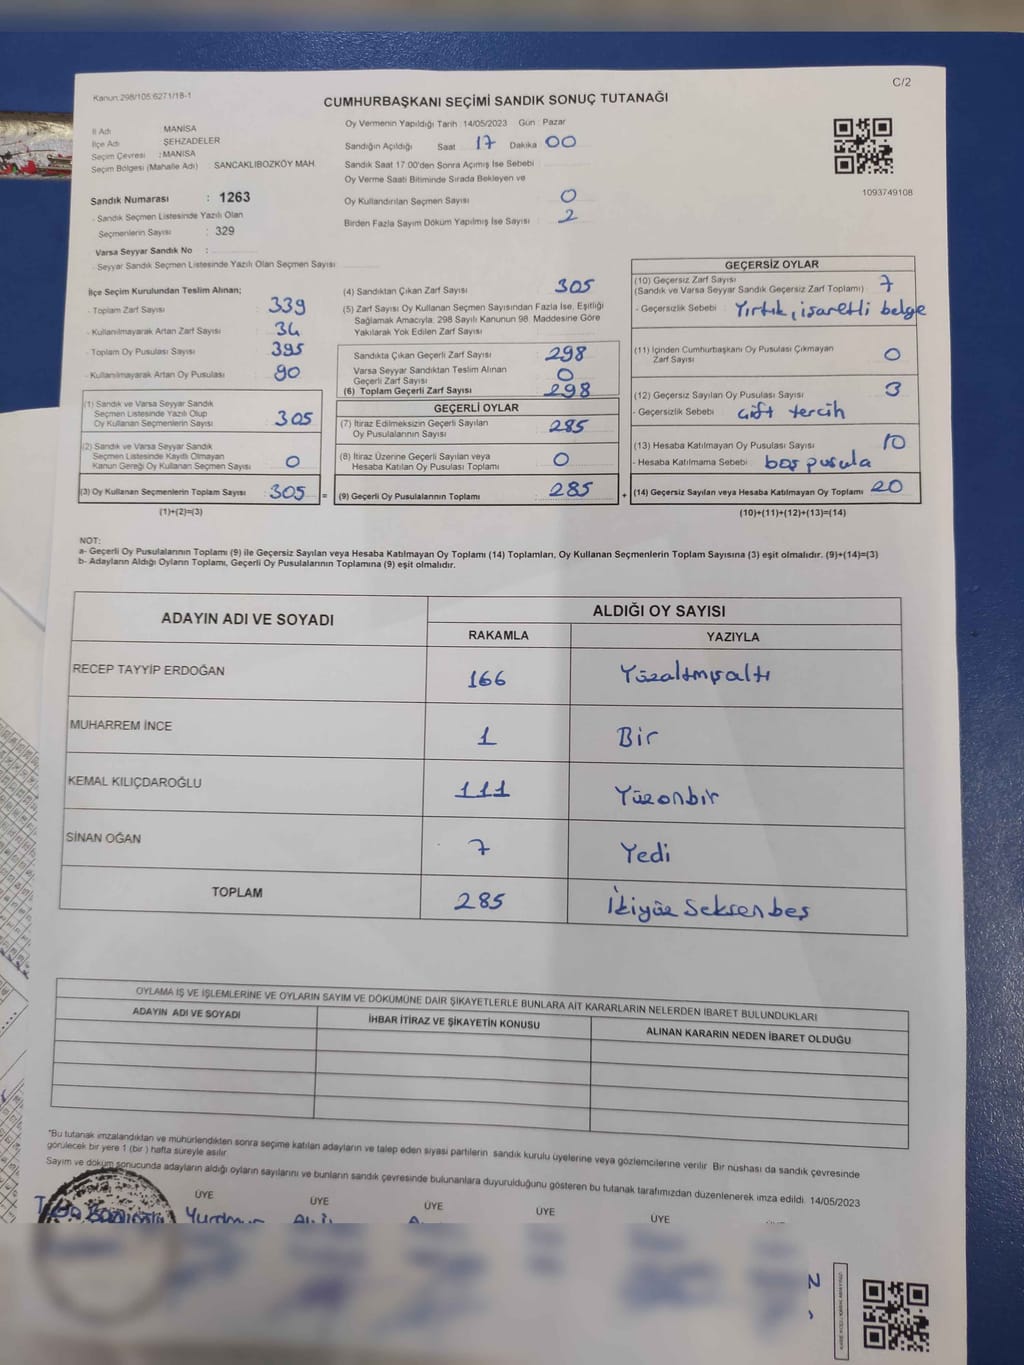 C/2
Kanun:298/105:6271/18-1
CUMHURBAŞKANI SEÇİMİ SANDIK SONUÇ TUTANAĞI
İl Adı MANİSA
İlçe Adı ŞEHZADELER
Seçim Çevresi : MANİSA
Seçim Bölgesi (Mahalle Adı) SANCAKLIBOZKÖY MAH.
Sandık Numarası : 1263
- Sandık Seçmen Listesinde Yazılı Olan
Seçmenlerin Sayısı : 329
Varsa Seyyar Sandık No :
- Seyyar Sandık Seçmen Listesinde Yazılı Olan Seçmen Sayısı
Oy Vermenin Yapıldığı Tarih 14/05/2023 Gün : Pazar
Sandığın Açıldığı Saat 17 Dakika 00
Sandık Saat 17:00'den Sonra Açımış İse Sebebi
Oy Verme Saati Bitiminde Sırada Bekleyen ve
Oy Kullandırılan Seçmen Sayısı 0
Birden Fazla Sayım Döküm Yapılmış İse Sayısı 2
1093749108
İlçe Seçim Kurulundan Teslim Alınan;
- Toplam Zarf Sayısı 339
- Kullanılmayarak Artan Zarf Sayısı 34
- Toplam Oy Pusulası Sayısı 395
- Kullanılmayarak Artan Oy Pusulası 90
(1) Sandık ve Varsa Seyyar Sandık
Seçmen Listesinde Yazılı Olup
Oy Kullanan Seçmenlerin Sayısı 305
(2) Sandık ve Varsa Seyyar Sandık
Seçmen Listesinde Kayıtlı Olmayan
Kanun Gereği Oy Kullanan Seçmen Sayısı 0
(3) Oy Kullanan Seçmenlerin Toplam Sayısı 305 =
(1)+(2)=(3)
(4) Sandıktan Çıkan Zarf Sayısı 305
(5) Zarf Sayısı Oy Kullanan Seçmen Sayısından Fazla İse, Eşitliği
Sağlamak Amacıyla, 298 Sayılı Kanunun 98. Maddesine Göre
Yakılarak Yok Edilen Zarf Sayısı
Sandıkta Çıkan Geçerli Zarf Sayısı 298
Varsa Seyyar Sandıktan Teslim Alınan
Geçerli Zarf Sayısı 0
(6) Toplam Geçerli Zarf Sayısı 298
GEÇERLİ OYLAR
(7) İtiraz Edilmeksizin Geçerli Sayılan
Oy Pusulalarının Sayısı 285
(8) İtiraz Üzerine Geçerli Sayılan veya
Hesaba Katılan Oy Pusulası Toplamı 0
(9) Geçerli Oy Pusulalarının Toplamı 285 +
GEÇERSİZ OYLAR
(10) Geçersiz Zarf Sayısı 7
(Sandık ve Varsa Seyyar Sandık Geçersiz Zarf Toplamı)
- Geçersizlik Sebebi : Yırtık, işaretli belge
(11) İçinden Cumhurbaşkanı Oy Pusulası Çıkmayan
Zarf Sayısı 0
(12) Geçersiz Sayılan Oy Pusulası Sayısı 3
- Geçersizlik Sebebi : çift tercih
(13) Hesaba Katılmayan Oy Pusulası Sayısı 10
- Hesaba Katılmama Sebebi : boş pusula
(14) Geçersiz Sayılan veya Hesaba Katılmayan Oy Toplamı 20
(10)+(11)+(12)+(13)=(14)
NOT:
a- Geçerli Oy Pusulalarının Toplamı (9) ile Geçersiz Sayılan veya Hesaba Katılmayan Oy Toplamı (14) Toplamları, Oy Kullanan Seçmenlerin Toplam Sayısına (3) eşit olmalıdır. (9)+(14)=(3)
b- Adayların Aldığı Oyların Toplamı, Geçerli Oy Pusulalarının Toplamına (9) eşit olmalıdır.
ADAYIN ADI VE SOYADI ALDIĞI OY SAYISI
RAKAMLA YAZIYLA
RECEP TAYYİP ERDOĞAN 166 Yüzaltmışaltı
MUHARREM İNCE 1 Bir
KEMAL KILIÇDAROĞLU 111 Yüzonbir
SİNAN OĞAN 7 Yedi
TOPLAM 285 İkiyüz Seksen beş
OYLAMA İŞ VE İŞLEMLERİNE VE OYLARIN SAYIM VE DÖKÜMÜNE DAİR ŞİKAYETLERLE BUNLARA AİT KARARLARIN NELERDEN İBARET BULUNDUKLARI
ADAYIN ADI VE SOYADI İHBAR İTİRAZ VE ŞİKAYETİN KONUSU ALINAN KARARIN NEDEN İBARET OLDUĞU
*Bu tutanak imzalandıktan ve mühürlendikten sonra seçime katılan adayların ve talep eden siyasi partilerin sandık kurulu üyelerine veya gözlemcilerine verilir. Bir nüshası da sandık çevresinde
görülecek bir yere 1 (bir) hafta süreyle asılır.
Sayım ve döküm sonucunda adayların aldığı oyların sayılarını ve bunların sandık çevresinde bulunanlara duyurulduğunu gösteren bu tutanak tarafımızdan düzenlenerek imza edildi. 14/05/2023
ÜYE ÜYE ÜYE ÜYE ÜYE